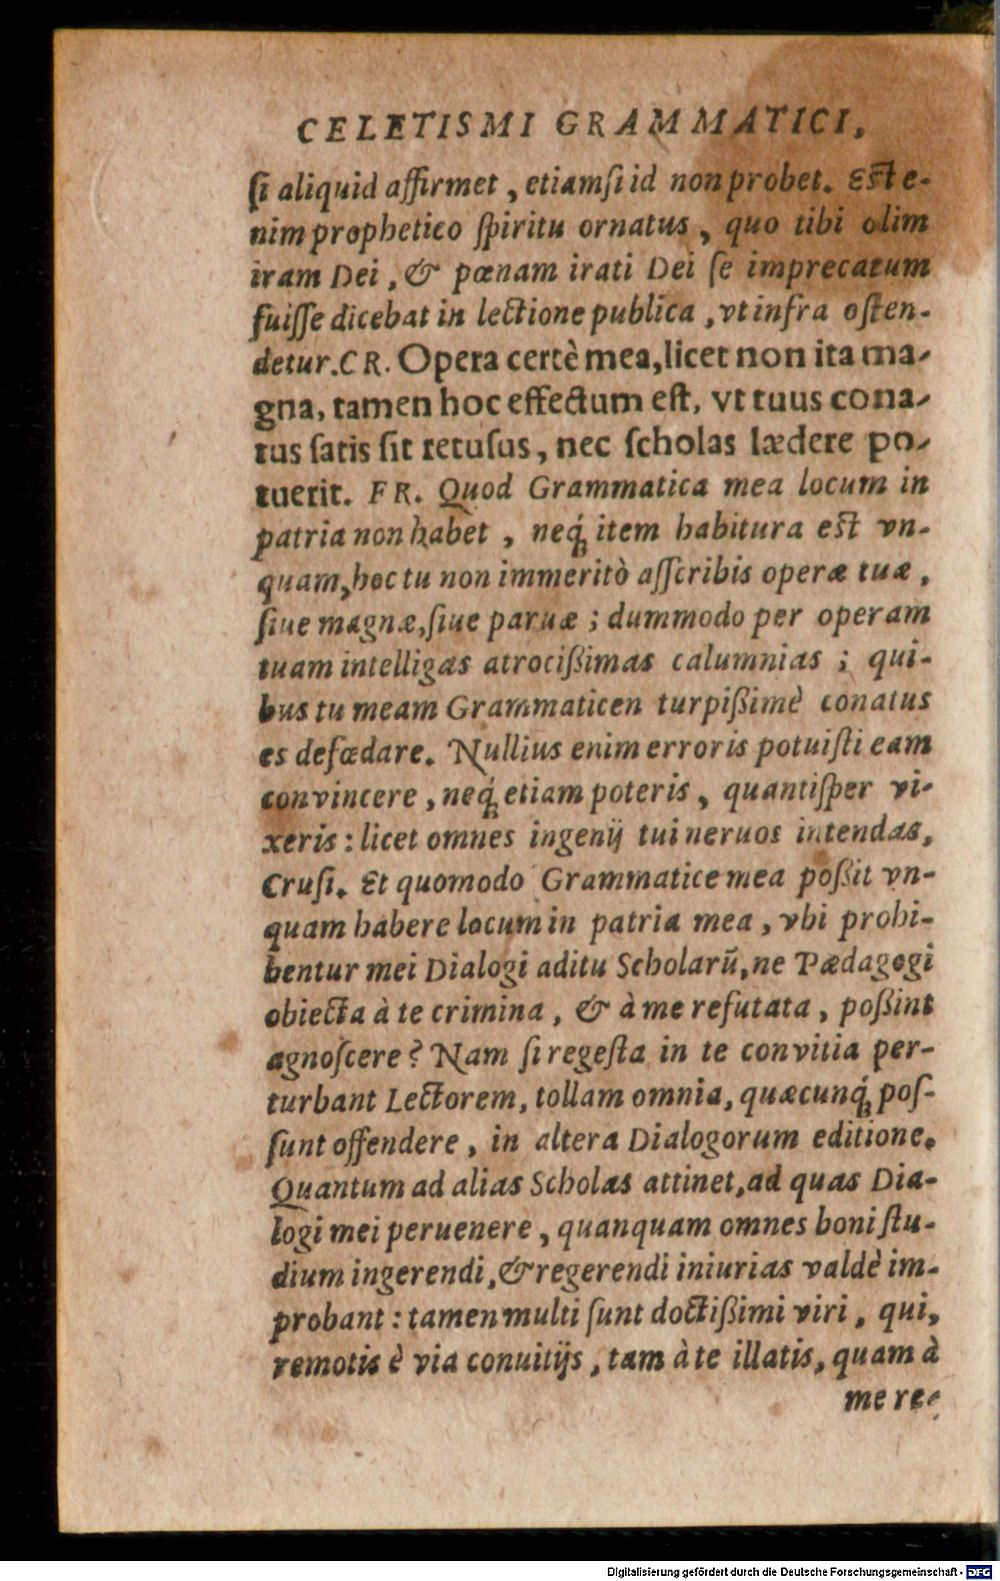 CELETISMI GRAMMATICI,
ſi aliquid affirmet, etiamſi id non probet. Est e-
nim prophetico ſpiritu ornatus, quo tibi olim
iram Dei, & pœnam irati Dei ſe imprecatum
fuiſſe dicebat in lectione publica, vt infra oſten-
detur. CR. Opera certè mea, licet non ita ma-
gna, tamen hoc effectum eſt, vt tuus cona-
tus ſatis ſit retuſus, nec ſcholas lædere po-
tuerit. FR. Quod Grammatica mea locum in
patria non habet, neq́; item habitura est vn-
quam, hoc tu non immeritò aſſcribis operæ tuæ,
ſiue magnæ, ſiue paruæ; dummodo per operam
tuam intelligas atrocißimas calumnias; qui-
bus tu meam Grammaticen turpißimè conatus
es defœdare. Nullius enim erroris potuiſti eam
convincere, neq́; etiam poteris, quantiſper vi-
xeris: licet omnes ingenij tui neruos intendas,
Cruſi. Et quomodo Grammatice mea poßit vn-
quam habere locum in patria mea, vbi prohi-
bentur mei Dialogi aditu Scholarũ, ne Pædagogi
obiecta à te crimina, & à me refutata, poßint
agnoſcere? Nam ſi regeſta in te convitia per-
turbant Lectorem, tollam omnia, quæcunq́; poſ-
ſunt offendere, in altera Dialogorum editione.
Quantum ad alias Scholas attinet, ad quas Dia-
logi mei peruenere, quanquam omnes boni ſtu-
dium ingerendi, & regerendi iniurias valdè im-
probant: tamen multi ſunt doctißimi viri, qui,
remotis è via conuitijs, tam à te illatis, quam à
me re-
Digitalisierung gefördert durch die Deutsche Forschungsgemeinschaft - DFG